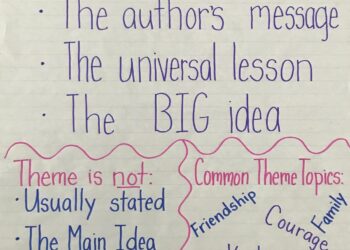 · The author's message
· The universal lesson
· The BIG idea
Theme is not:
· Usually stated
· The Main Idea
Common Theme Topics:
Friendship
Courage
Family